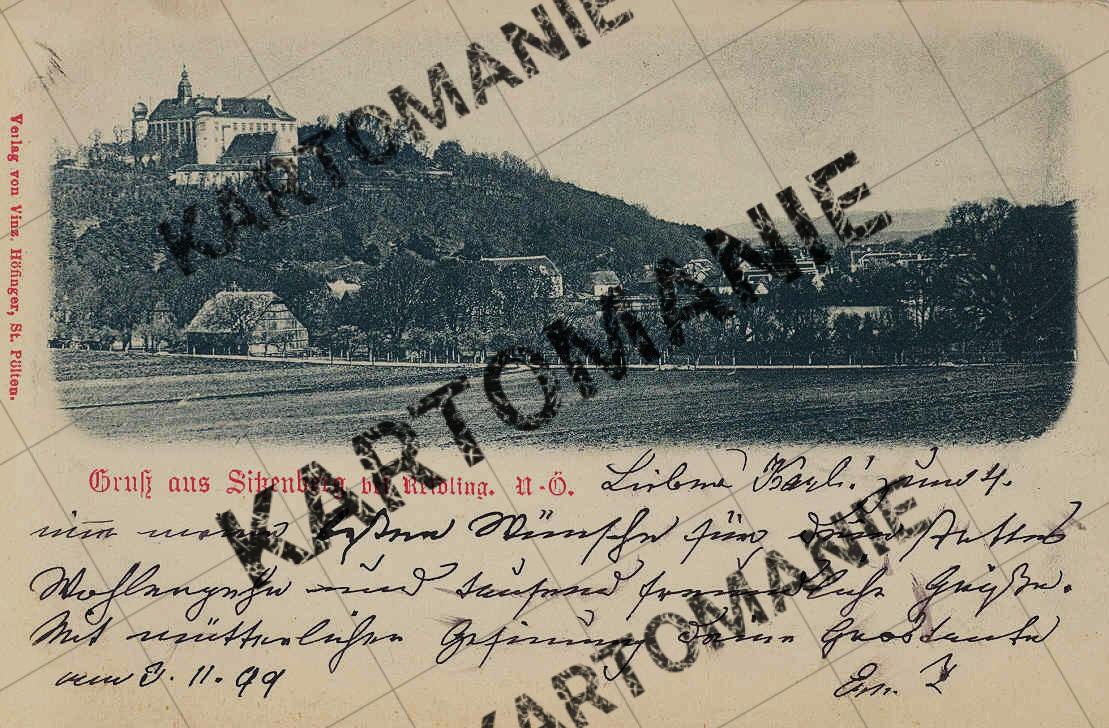 KARTOMANIE
KARTOMANIE
Verlag von Vinz. Höfinger, St. Pölten.
Gruß aus Sitzenberg bei Reidling. N-Ö.
Lieber Karl! zum 4.
nim meine besten Wünsche für dein stettes
Wohlergehn und tausend freundliche Grüße.
Mit mütterlicher Gesinnung deine Grostante
am 3. 11. 99
KARTOMANIE
KARTOMANIE